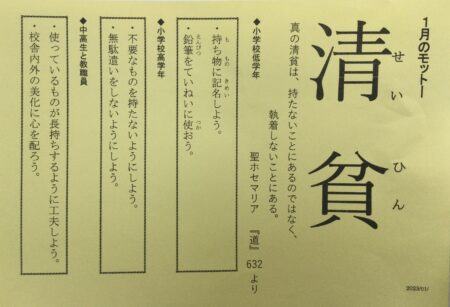 1月のモットー
清貧
せいひん
真の清貧は、持たないことにあるのではなく、
執着しないことにある。
聖ホセマリア 『道』 632 より
◆小学校低学年
・持ち物に記名しよう。
も もの きめい
・鉛筆をていねいに使おう。
えんぴつ つか
◆小学校高学年
・不要なものを持たないようにしよう。
・無駄遣いをしないようにしよう。
◆中高生と教職員
・使っているものが長持ちするように工夫しよう。
・校舎内外の美化に心を配ろう。
2023/01/